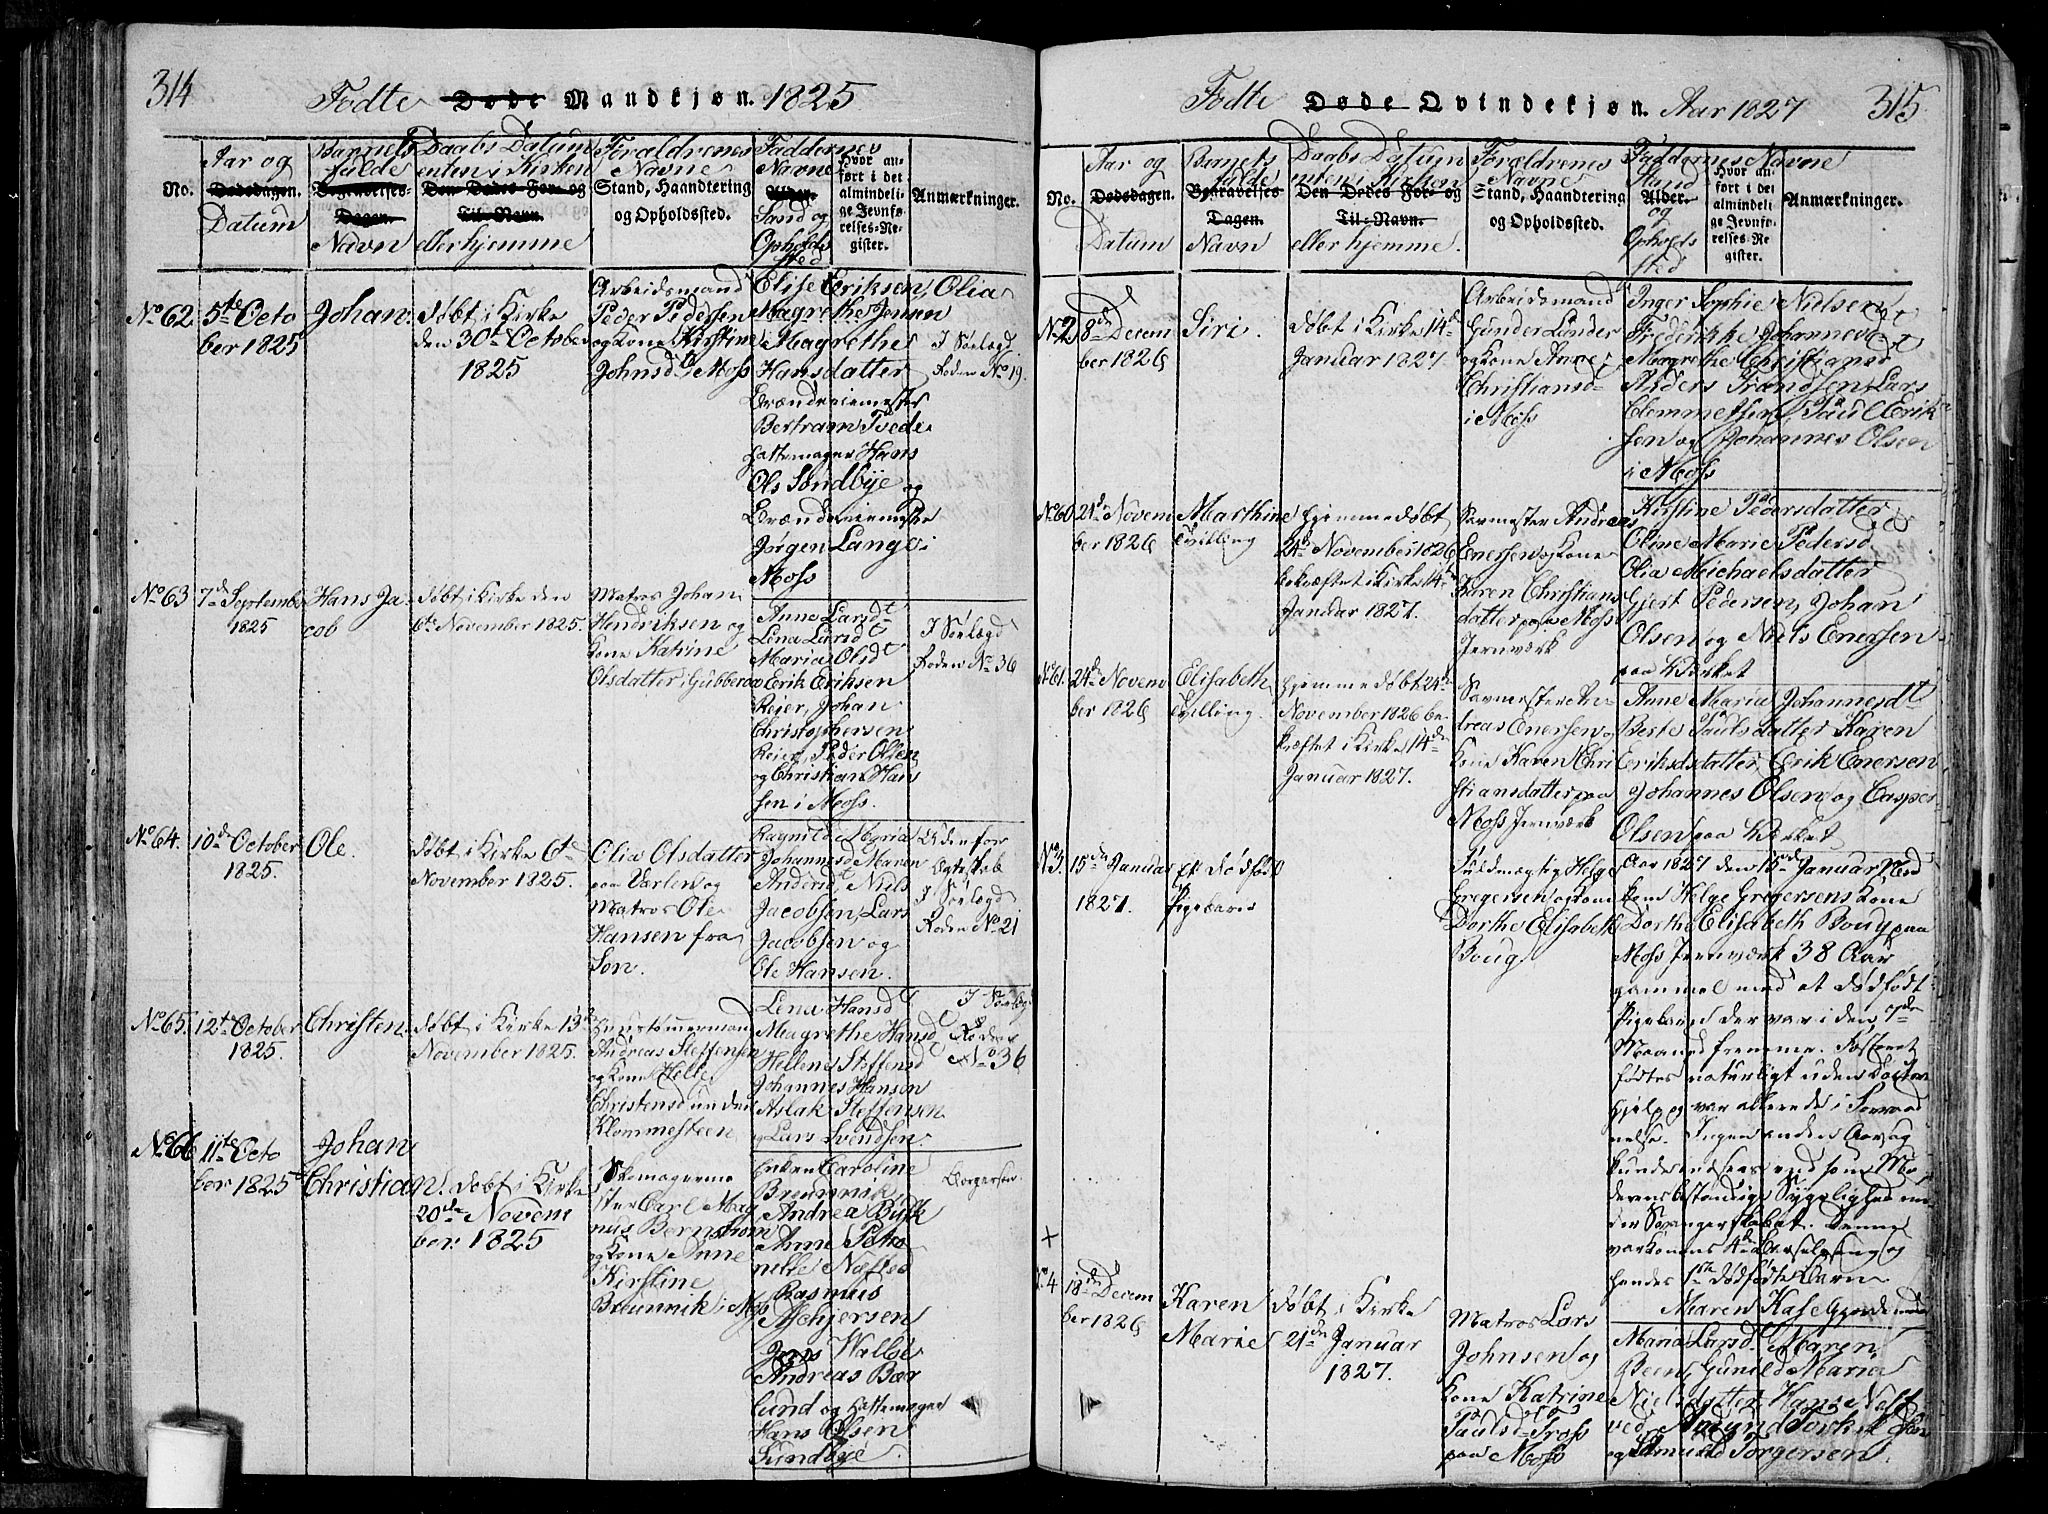 314
Fødte Døde Mandkjøn. 1825
No.
Aar og
Dødsdagen.
Datum
Barnets
fulde
Begravelses-
Dagen.
Navn
Daabs Datum
enten i Kirken
Den Dødes For- og
Til-Navn.
eller hjemme
Forældrenes
Navne
Stand, Haandtering
og Opholdssted.
Faddernes
Navne
Alder.
Stand og
Opholds
sted
Hvor an-
ført i det
almindeli-
ge Jevnfø-
relses-Re-
gister.
Anmærkninger.
No 62
5te Octo
ber 1825
Johan.
døbt i Kirke
den 30te October
1825
Arbeidsmand
Peder Pedersen
og Kone Kirstine
Johnsdt Moss
Elise Eriksen, Olia
Magrethe Jensen
Magrethe
Hansdatter
Brændeviemester
Bertram Tvede
Hattemager Hans
Ols Sundbye og
Brændeviemester
Jørgen Lange i
Moss
I Sørlægd
Roden No 19.
No 63
7de September
1825
Hans Ja
cob
døbt i Kirke den
6te November 1825.
Matros Johan
Hendriksen og
Kone Katrine
Olsdatter i Gubberoa
Anne Larsdt
Lena Larsdt
Maria Olsdt
Erik Eriksen
Reier, Johan
Christophersen
Reier, Peder Olsen
og Christian Han
sen i Moss.
I Sørlægd
Roden No 36
No 64.
10de October
1825.
Ole.
døbt i Kirke 6te
November 1825.
Olia Olsdatter
paa Varlen og
Matros Ole
Hansen fra
Son.
Ragnild Maria
Johannesd Maren
Andersdt, Niels
Jacobsen, Lars
Jacobsen og
Ole Hansen.
Udenfor
Ægteskab
I Sørlægd
Roden No 21
No 65.
12te October
1825.
Christen
døbt i Kirke 13de
November 1825.
Huustømmermand
Andreas Steffensen
og Kone Helle
Christensd under
Klommesteen
Lena Hansd
Magrethe Hansd
Hellene Steffensd
Johannes Hansen
Aslak Steffensen
og Lars Svendsen.
I Sørlægd
Roden
No 36
No 66
11te Octo
ber 1825
Johan
Christian.
døbt i Kirke
20de Novem
ber 1825
Skomagerme
ster Carl Mag
nus Bernstrøm
og Kone Anne
Kirstine
Breunnik i Moss
Enken Caroline
Breunnik
Andrea Busk
Anne Petro
nelle Næsted
Rasmus
Aschjersen
Jens Walbe
Andreas Bær
lund og Hattemager
Hans Olsen
Sundbye
Borgersøn.
Fødte Døde Qvindekjøn. Aar 1827
315
No.
Aar og
Dødsdagen.
Datum
Barnets
fulde
Begravelses
Dagen.
Navn
Daabs Datum
enten i Kirken
Den Dødes For- og
Til-Navn.
eller hjemme.
Forældrenes
Navne
Stand, Haandtering
og Opholdssted.
Faddernes Navne
Stand
Alder.
og
Opholds
sted
Hvor an-
ført i det
almindeli
ge Jevnfø-
relses-Re
gister.
Anmærkninger.
No 2
8de Decem
ber 1826
Siri.
døbt i Kirke 14de
Januar 1827
Arbeidsmand
Gunder Lunder
og Kone Anne
Christiansd
i Moss
Inger Sophie Nielsen
Frederikke Johannesdt
Margrethe Christiansd
Anders Trandsen, Lars
Clemmetsen, Paul Erik
sen og Johannes Olsen
i Moss
No 60
21de Novem
ber 1826
Marthine
Tvilling
hjemmedøbt
24de November 1826
bekræftet i Kirke 14de
Januar 1827.
Savmester Andreas
Enersen og Kone
Karen Christians
datter paa Moss
Jernværk
Kirstine Pedersdatter
Oline Marie Pedersd
Olia Michaelsdatter
Gjert Pedersen, Johan
Olsen og Niels Enersen
paa Værket
No 61.
24de Novem
ber 1826
Elisabeth
Tvilling.
hjemmedøbt 24de
November 1826 be
kræftet i Kirke 14de
Januar 1827.
Savmester An
dreas Enersen og
Kone Karen Chri
stiansdatter paa
Moss Jernværk
Anne Maria Johannesdt
Berte Paulsdatter Karen
Eriksdatter, Erik Enersen
Johannes Olsen og Casper
Olsen paa Værket
No 3.
15de Januar
1827.
Et Dødfødt
Pigebarn
Fuldmægtig Helge
Gregersen og Kone
Dorthe Elisabeth
Boug
Aar 1827 den 15de Januar Ned
kom Helge Gregersens Kone
Dorthe Elisabeth Boug paa
Moss Jernværk 38 Aar
gammel med et dødfødt
Pigebarn der var i den 7de
Maaned fremme. Fosteret
fødtes naturligt uden
Hjelp og var allerede i Forraad
nelse. Ingen anden Aarsag
kunde udsees end som Mo
derens bestandige Sygelighed un
der Svangerskabet. Denne
var Konens 4de Barselseng og
hendes 1ste dødfødte Barn
Maren Hase Gjordemoder
+
No 4
18de Decem
ber 1826
Karen
Marie
døbt i Kirke
21de Januar
1827.
Matros Lars
Johnsen og
Kone Katrine
Paulsd Tross
paa Moss
Maria Larsd. Maren
Been, Gunild Maria
Nielsdatter Hans
Amund
og Amund Torgersen.